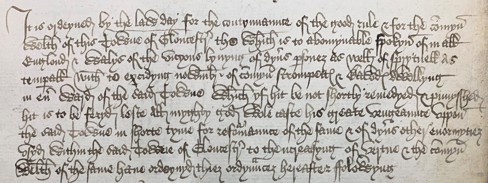 It is ordeyned by the law day for the contynuance of the good rule & for the comyn
welth of this Towne of Gloucestr the which is to abominable spokyn of in all
England & Walys of the vicious lyvyng of dyvs psones as well of spyrituell as
temperall with to excedyng nowmbr of comyn strompettes & bawdes dwellyng
in evy ward of the said Towne which yf hit be not shortly remedyed & punysshed
hit is to be feryd leste all myghty god wole caste his greate vengeaunce uppon
the said Towne in shorte tyme for reformaunce of the same & of dyvs other enormytiez
used within the said Towne of Gloucestr to the ncresyng of vertue & the comyn
welth of the same hathe ordeynyd thiez ordynancez hereafter folowyng